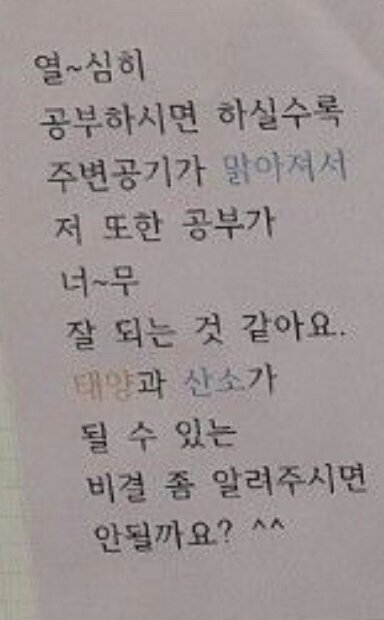 열~심히
공부하시면 하실수록
주변공기가 맑아져서
저 또한 공부가
너~무
잘 되는 것 같아요.
태양과 산소가
될 수 있는
비결 좀 알려주시면
안될까요? ^^